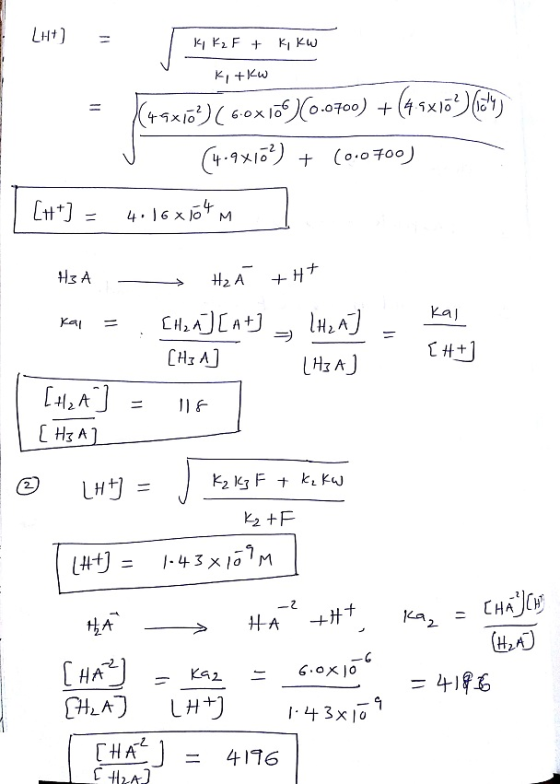 [H+] = √((K1 K2 F + K1 Kw) / (K1 + Kw))
= √(((4.9x10^-2)(6.0x10^-6)(0.0700) + (4.9x10^-2)(10^-14)) / ((4.9x10^-2) + (0.0700)))
[H+] = 4.16x10^-4 M
H3A ⟶ H2A^- + H^+
Ka1 = [H2A^-][A+] / [H3A] ⇒ [H2A^-] / [H3A] = Ka1 / [H+]
[H2A^-] / [H3A] = 118
② [H+] = √((K2 K3 F + K2 Kw) / (K2 + F))
[H+] = 1.43x10^-9 M
H2A^- ⟶ HA^-2 + H+, Ka2 = [HA^-2][H / (H2A^-)
[HA^-2] / [H2A^-] = Ka2 / [H+] = 6.0x10^-6 / 1.43x10^-9 = 4196
[HA^-2] / [H2A] = 4196